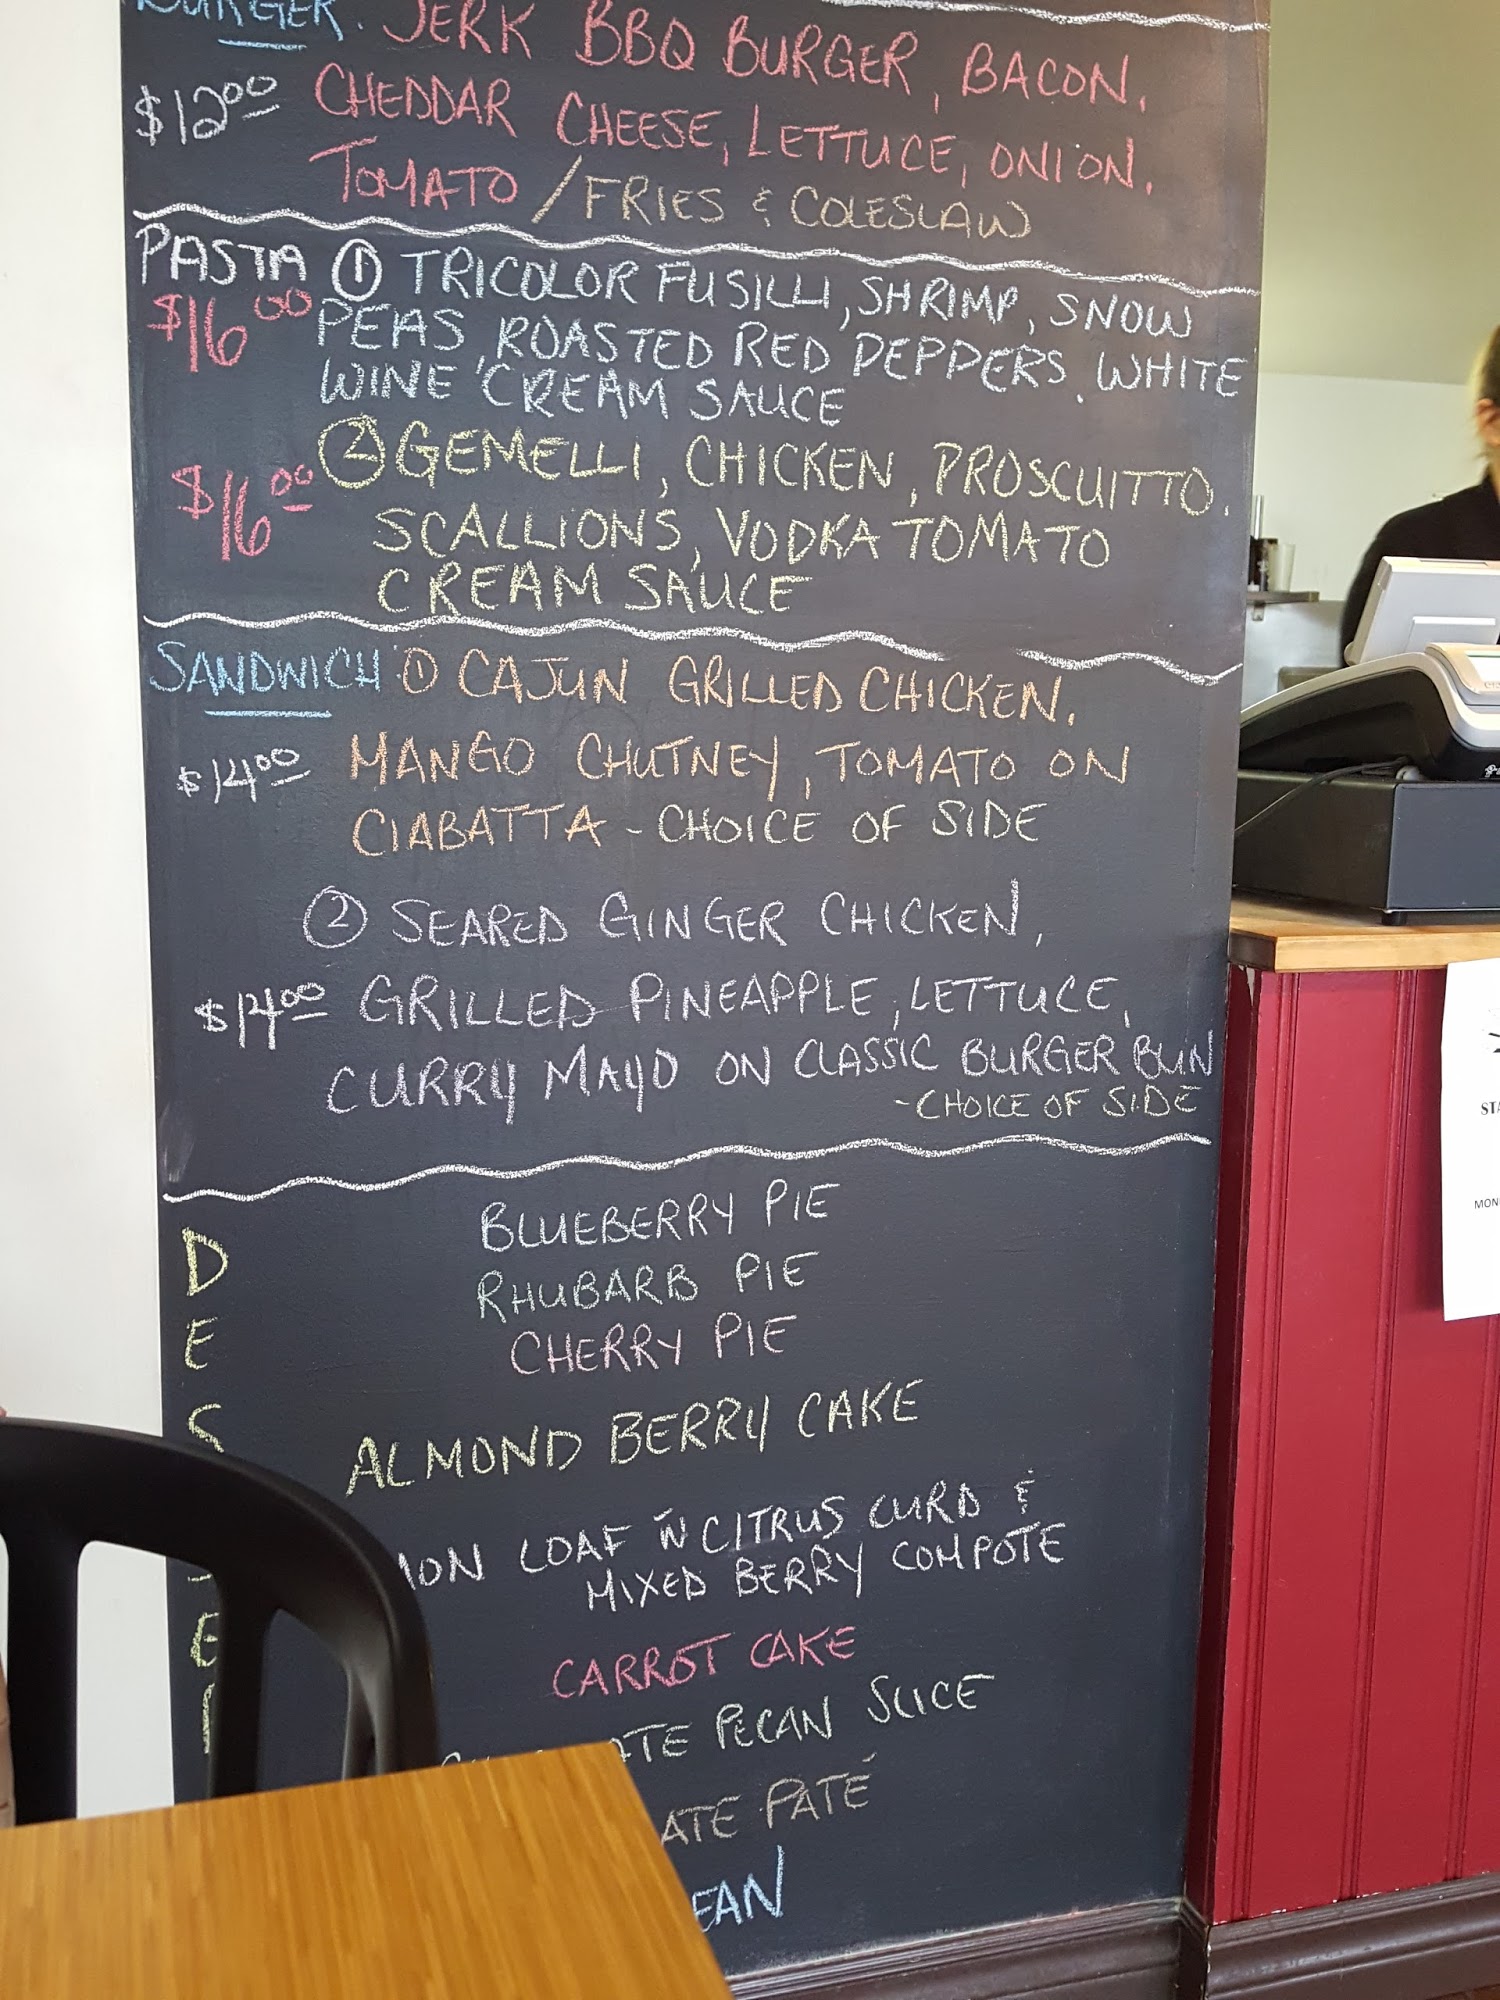 BURGER. JERK BBQ BURGER, BACON,
$12.00 CHEDDAR CHEESE, LETTUCE, ONION,
TOMATO / FRIES & COLESLAW
PASTA ① TRICOLOR FUSILLI, SHRIMP, SNOW
$16.00 PEAS, ROASTED RED PEPPERS, WHITE
WINE CREAM SAUCE
② GEMELLI, CHICKEN, PROSCUITTO,
$16.00 SCALLIONS, VODKA TOMATO
CREAM SAUCE
SANDWICH ① CAJUN GRILLED CHICKEN,
$14.00 MANGO CHUTNEY, TOMATO ON
CIABATTA - CHOICE OF SIDE
② SEARED GINGER CHICKEN,
$14.00 GRILLED PINEAPPLE, LETTUCE,
CURRY MAYO ON CLASSIC BURGER BUN
- CHOICE OF SIDE
BLUEBERRY PIE
D
RHUBARB PIE
E
CHERRY PIE
S
ALMOND BERRY CAKE
MON LOAF W CITRUS CURD &
MIXED BERRY COMPOTE
E
CARROT CAKE
ATE PECAN SLICE
ATE PATÉ
EAN
STA
MON